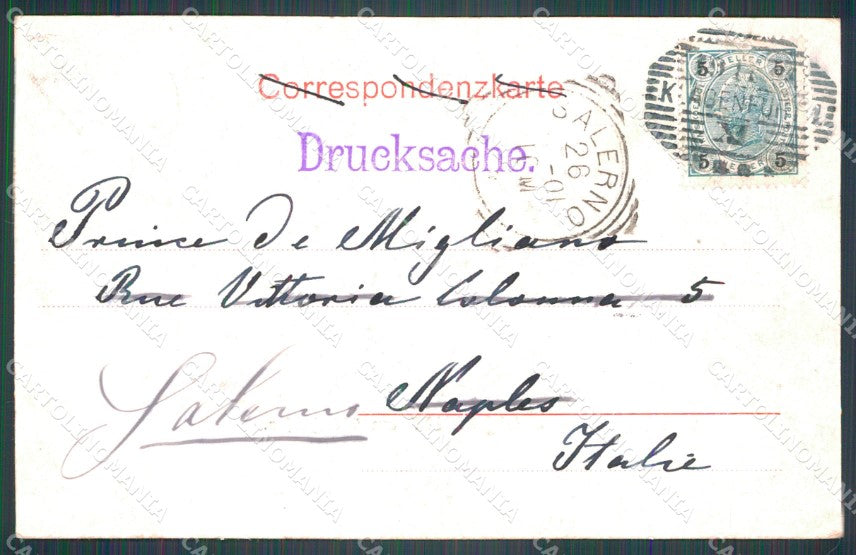 Correspondenzkarte
Drucksache.
SALERNO
26
10-01
5 HELLER 5
K
GENFU
5 5
Prince De Migliano
Rue Vittoria Colonna 5
Salerno
Naples
Italie
CARTOLINOMANIA